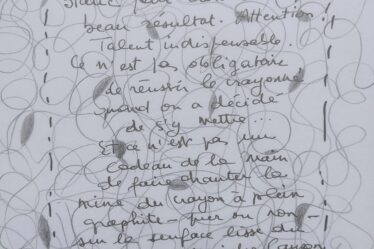 pour
beau résultat. Attention
Talent indispensable.
Ce n'est pas obligatoire
de réussir le crayonné
quand on a décidé
de s'y mettre...
Et ce n'est pas un
cadeau de la main
de faire chanter la
mine du crayon à plein
graphite - pur ou non -
sur la surface lisse du